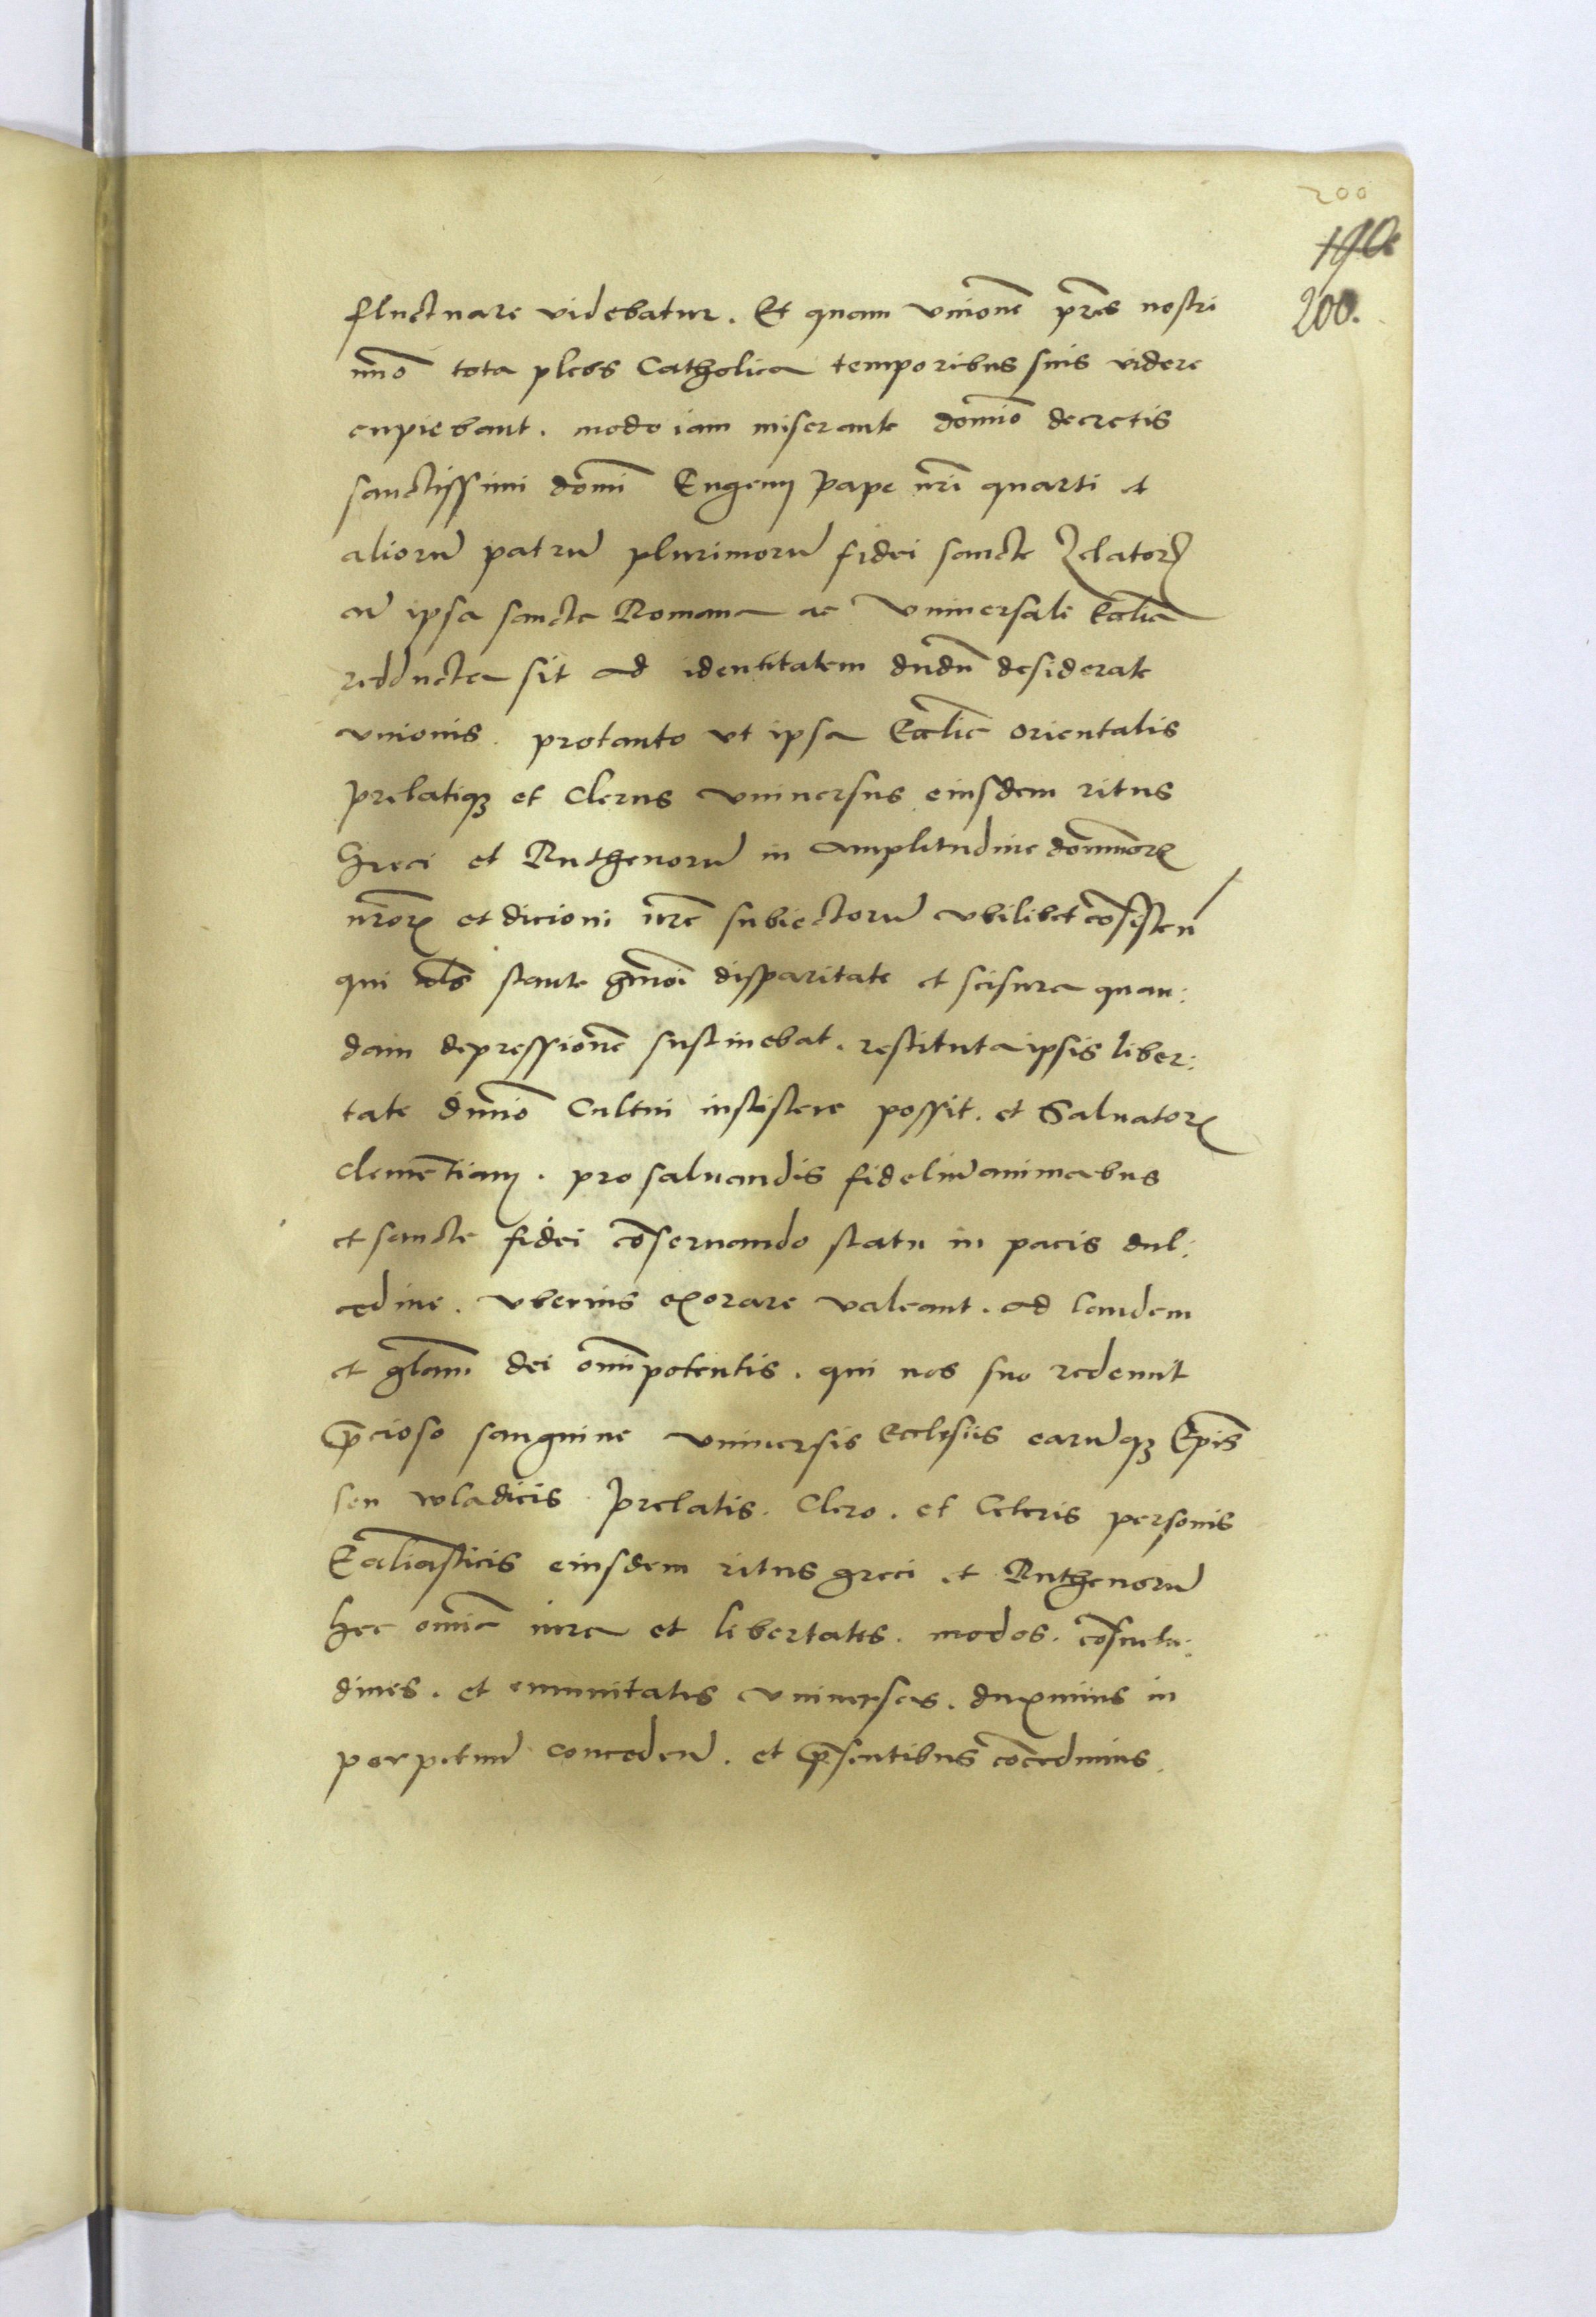 200
190
200.
fluctuare videbatur. Et quam vnione͂ pr͂es nostri
ym͂o tota plebs Catholica temporibus suis videre
cupiebant. modo iam miserante domi͂o decretis
sanctissimi domi͂ Eugenij Pape nr͂i quarti et
alioru͂ patru͂ plurimoru͂ fidei sancte Zelatorꝝ
cu͂ ipsa sancta Romana ac Vniuersali Eccl͂ia
redducta sit ad identitatem dudu͂ desiderate
vnionis. protanto vt ipsa Eccl͂ia orientalis
prelatiqꝫ et Clerus vniuersus eiusdem ritus
Greci et Ruthenoru͂ in amplitudine dominiorꝝ
nr͂orꝝ et dicioni nr͂e subiectoru͂ vbilibet co͂sisten
qui al͂s stante hm͂oi disparitate et scisura quan:
dam depressione͂ sustinebat. restituta ipsis liber:
tate diui͂o Cultui insistere possit. et Saluatorꝭ
Cleme͂tiam. pro saluandis fideliu͂ animabus
et sancte fidei co͂seruando statu in pacis dul:
cedine. vberius exorare valeant. ad laudem
et gl͂am dei om͂ipotentis. qui nos suo redemit
p͂cioso sanguine vniuersis Ecclesiis earu͂qꝫ Ep͂is
seu wladicis Prelatis. Clero. et Ceteris personis
Eccl͂iasticis eiusdem ritus greci et Ruthenoru͂
hec om͂ia iura et libertates. modos. co͂suetu:
dines. et emunitates vniuersas. duximus in
perpetuu͂ concedendu͂. et p͂sentibus co͂cedimus.